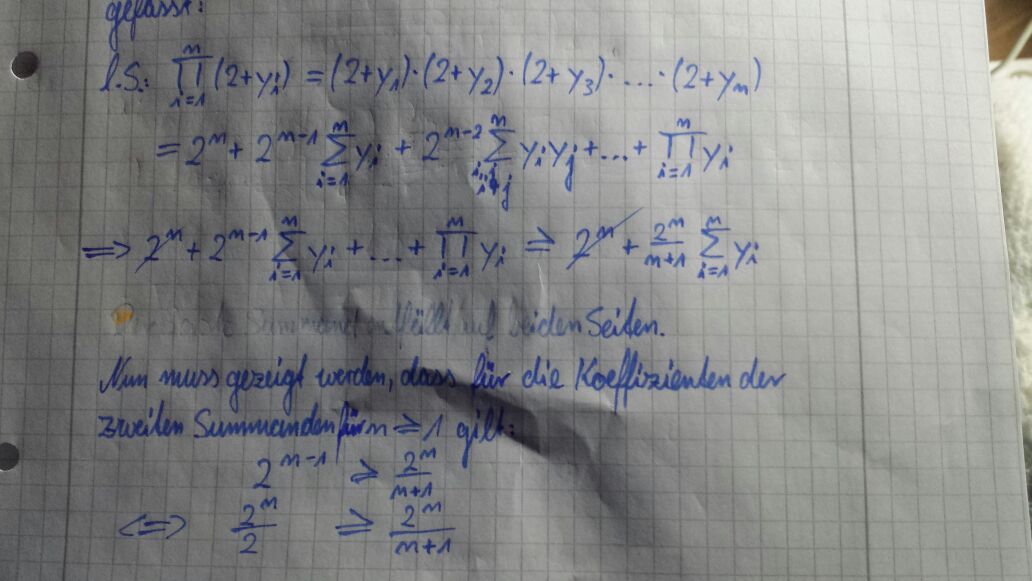 gefasst:
l.S.: ∏_{i=1}^{n} (2+y_i) = (2+y_1)·(2+y_2)·(2+y_3)·...·(2+y_n)
= 2^n + 2^{n-1} ∑_{i=1}^{n} y_i + 2^{n-2} ∑_{i,j; i≠j}^{n} y_i y_j + ... + ∏_{i=1}^{n} y_i
⟹ 2^n + 2^{n-1} ∑_{i=1}^{n} y_i + ... + ∏_{i=1}^{n} y_i ≥ 2^n + \frac{2^n}{n+1} ∑_{i=1}^{n} y_i
Summand entfällt auf beiden Seiten.
Nun muss gezeigt werden, dass für die Koeffizienten der
zweiten Summanden für n ≥ 1 gilt:
2^{n-1} ≥ \frac{2^n}{n+1}
⟺ \frac{2^n}{2} ≥ \frac{2^n}{n+1}